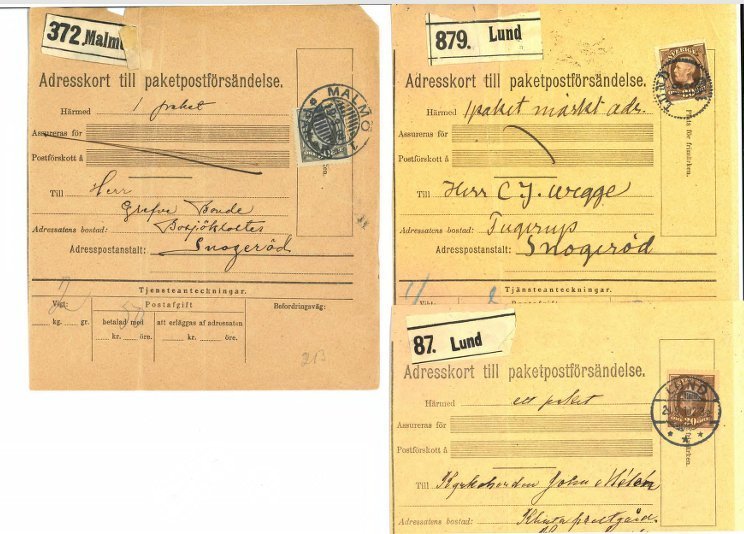 372. Malmö
Adresskort till paketpostförsändelse.
Härmed 1 paket
Assureras för
Postförskott à
MALMÖ
1
Till Herr
Grefve Bonde
Adressatens bostad: Bosjökloster
Adresspostanstalt: Snogeröd
Tjensteanteckningar.
Vigt: Postafgift Befordringsväg:
kg. gr. betalad med att erläggas af adressaten
kr. öre. kr. öre.
213
879. Lund
Adresskort till paketpostförsändelse.
SVERIGE
LUND
Härmed 1 paket märkt adr.
Assureras för
Postförskott à
Plats för frimärken.
Till Herr C J. Wegge
Adressatens bostad: Fugerup
Adresspostanstalt: Snogeröd
Tjänsteanteckningar.
Postafgift
87. Lund
Adresskort till paketpostförsändelse.
LUND
Härmed ett paket
Assureras för
Postförskott à
för frimärken.
Till Kyrkoherden John
Adressatens bostad: Klinta prestgård.